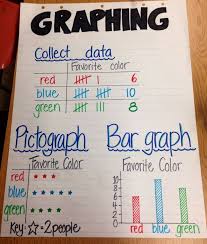 GRAPHING
Collect data
Favorite Color
red 6
blue 10
green 8
Pictograph
Favorite Color
red
blue
green
Key: ☆=2 people
Bar graph
Favorite Color
10
8
6
4
2
0
red blue green